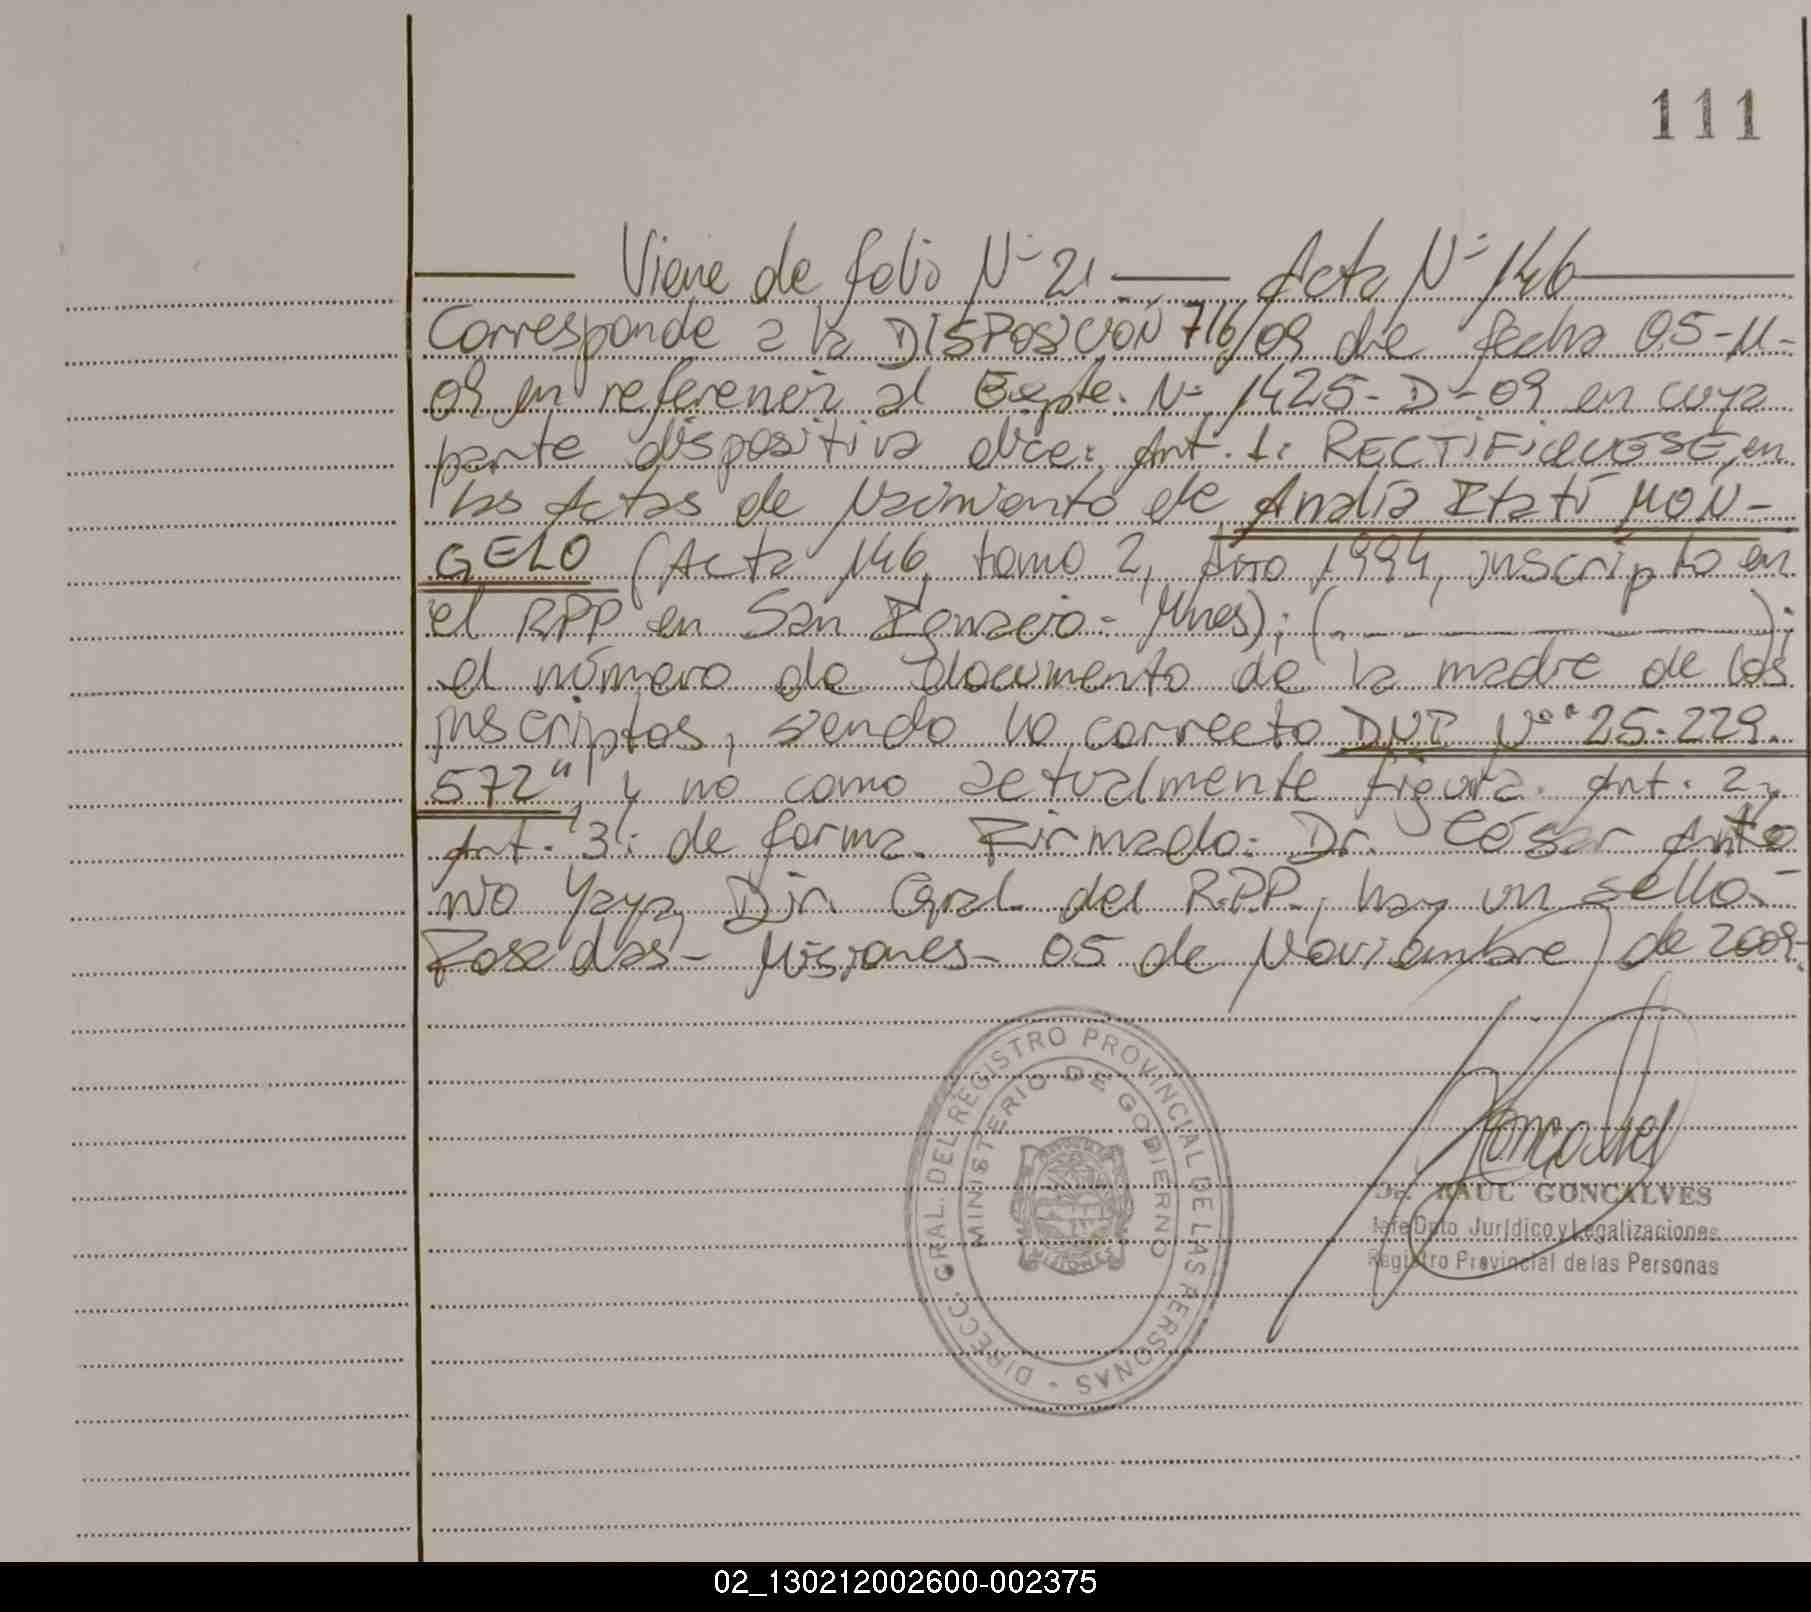 111
Viene de folio Nº 21 — Acta Nº 146
Corresponde a la DISPOSICIÓN 716/09 de fecha 05-11-
09 en referencia al Expte. Nº 1425-D-09 en cuya
parte dispositiva dice: Art. 1: RECTIFIQUESE, en
las Actas de Nacimiento de Analía Itatí MON-
GELO (Acta 146, tomo 2, Año 1994, inscripto en
el RPP en San Ignacio - Mnes); ( - - - - );
el número de Documento de la madre de los
inscriptos, siendo lo correcto DNI Nº "25.229.
572", y no como actualmente figura. Art. 2 y
Art. 3: de forma. Firmado: Dr. César Anto
nio Yaya, Dir. Gral. del R.P.P., hay un sello.-
Posadas - Misiones - 05 de Noviembre de 2009.
DIRECC. GRAL. DEL REGISTRO PROVINCIAL DE LAS PERSONAS -
MINISTERIO DE GOBIERNO
MISIONES
Goncalves
Dr. RAUL GONCALVES
Jefe Dpto Jurídico y Legalizaciones
Registro Provincial de las Personas
02_130212002600-002375